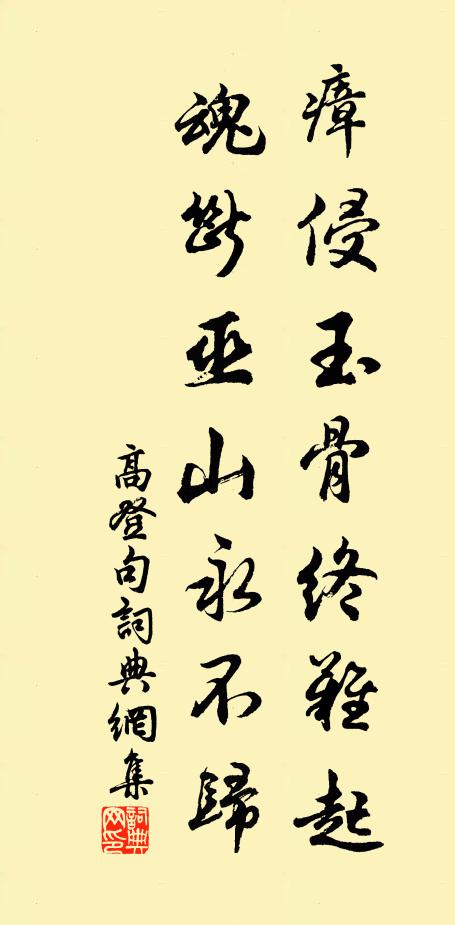 瘴侵玉骨終難起
魂斷巫山永不歸
高登句詞典網集
詞典網印